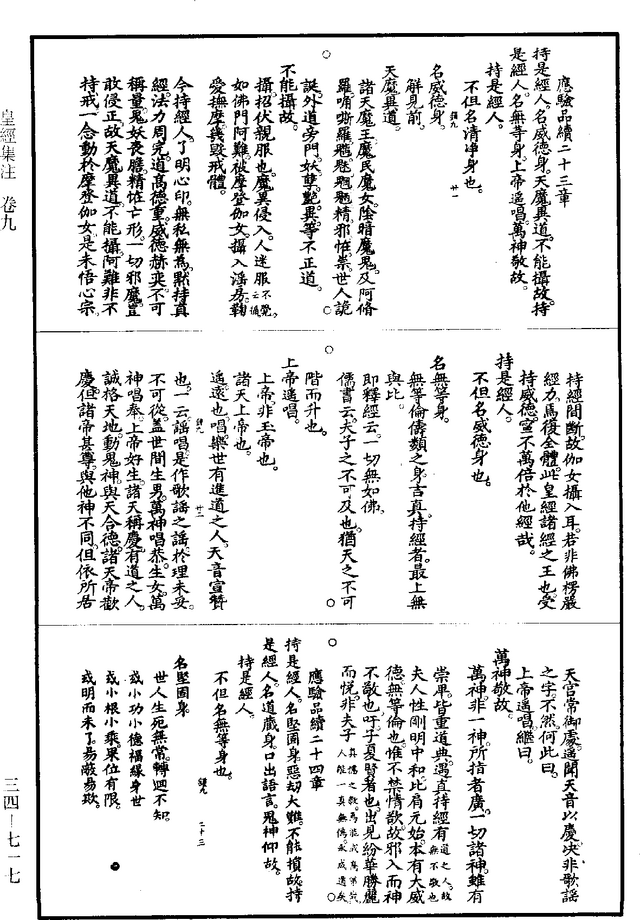 皇經集注 卷九
應驗品續二十三章
持是經人名威德身天魔異道不能攝故持
是經人名無等身上帝遥唱萬神敬故
持是經人
不但名清凈身也
名威德身
解見前
天魔異道
諸天魔王魔民魔女陰暗魔鬼及阿脩
精邪恠祟世人詭
誕外道旁門妖孽艶異等不正道
不能攝故
攝招伏親服也魔異侵入人迷服
如佛門阿難被摩登伽女攝入滛房鞠
愛撫摩義毀戒體
今持經人了明心印無私無為黙持真
經法力周完道高德重威德赫奕不可
稱量鬼妖喪膽精恠亡形一切邪魔豈
敢侵正故天魔異道不能攝阿難非不
持戒一念動扵摩登伽女是未悟心宗
持經間斷故伽女攝入耳若非佛楞嚴
經力焉復全體此皇經諸經之王也受
持威德寧不萬倍扵他經哉
持是經人
不但名威德身也
名無等身
無等倫儔類之身言真持經者最上無
與比
即釋經云一切無如佛
儒書云夫子之不可及也猶天之不可
階而升也
上帝遥唱
上帝非玉帝也
諸天上帝也
遥遠也唱樂世有進道之人天音宣贊
也一云謡唱是作歌謡之謡扵理未妥
不可從蓋世間生男萬神唱恭生女萬
神唱奉上帝好生諸天稱慶有道之人
誠格天地動鬼神與天合德諸天帝歡
慶但諸帝甚尊與他神不同但依所居
天宫常御處遥聞天音以慶决非歌謡
之字不然何此曰
上帝遥唱繼曰
萬神敬故
萬神非一神所指者廣一切諸神雖有
崇卑皆重道典遇真持經有
夫人性剛明中和比肩元始本有大威
德無等倫也惟不禁情欲故邪入而神
不敬也吁子夏賢者也出見紛華勝麗
而悦非夫子
應驗品續二十四章
持是經人名堅固身惡刼大難不能損故持
是經人名道藏身口出語言鬼神仰故
持是經人
不但名無等身也
名堅固身
世人生死無常轉迴不知
或小功小德福緣身世
或小根小乘果位有限
或明而未了易敵易欺
三四—七一七